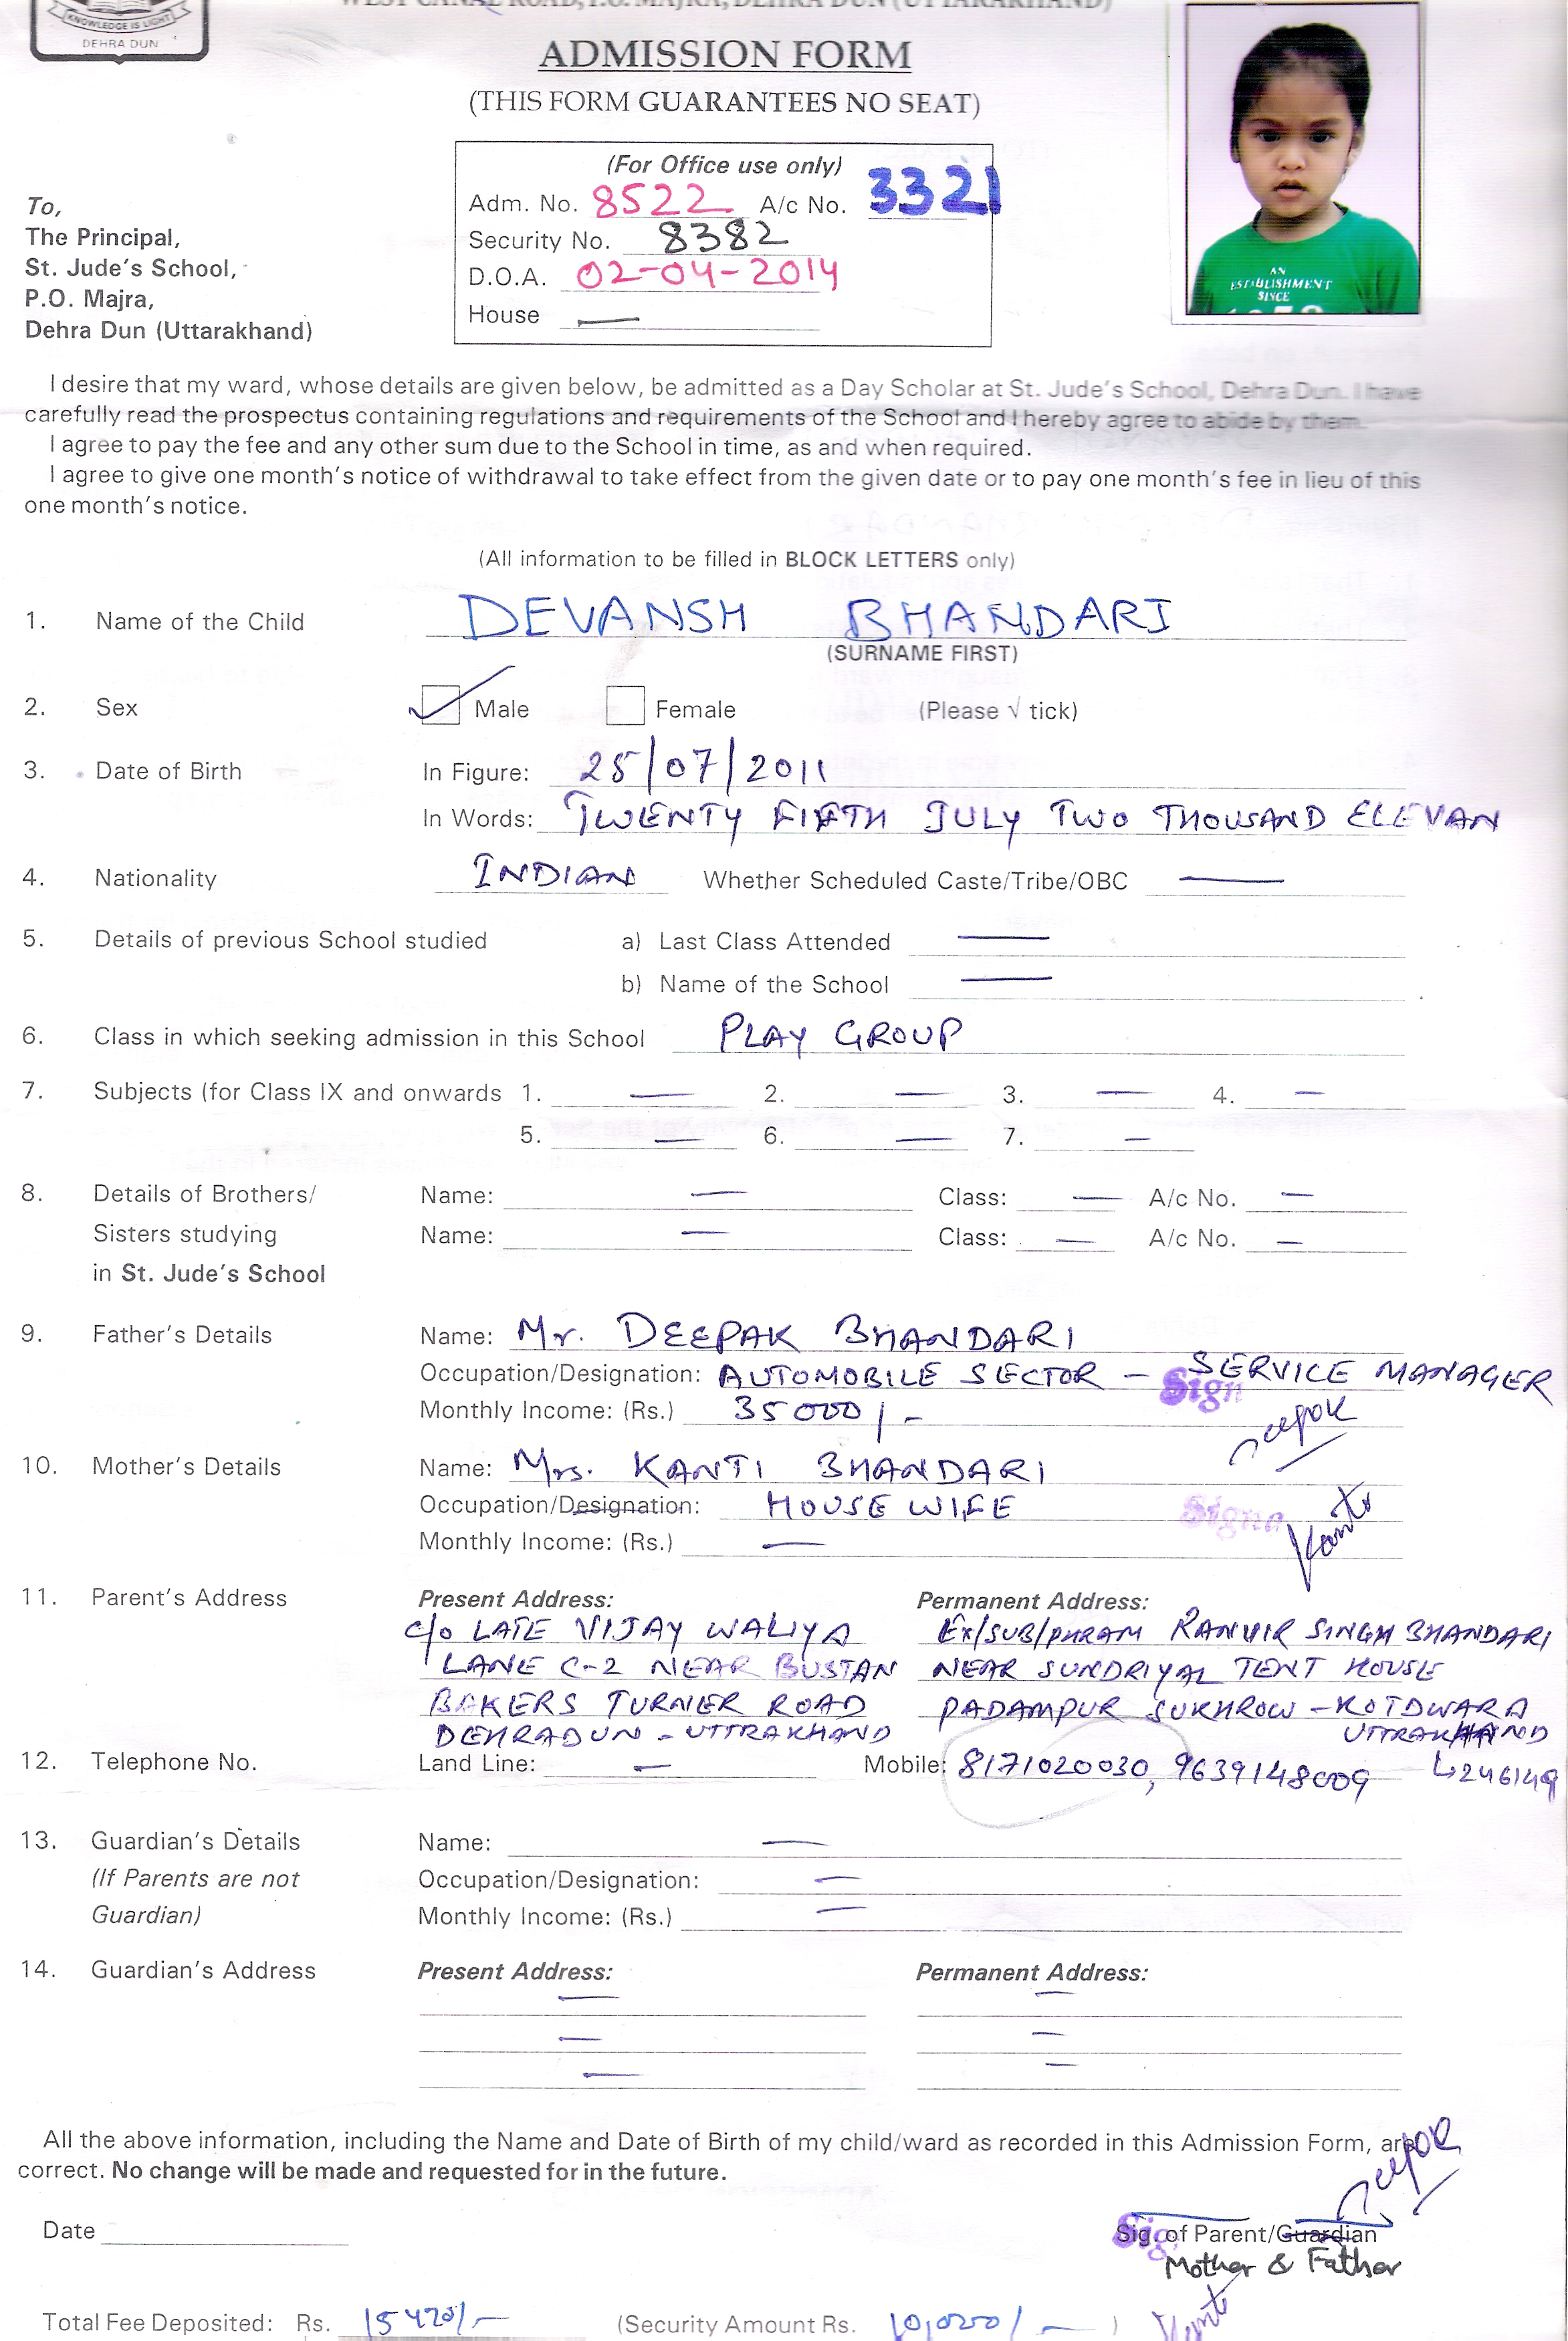 KNOWLEDGE IS LIGHT
DEHRA DUN
WEST CANAL ROAD, P.O. MAJRA, DEHRA DUN (UTTARAKHAND)
ADMISSION FORM
(THIS FORM GUARANTEES NO SEAT)
(For Office use only)
Adm. No. 8522 A/c No. 3321
Security No. 8382
D.O.A. 02-04-2014
House —
To,
The Principal,
St. Jude's School,
P.O. Majra,
Dehra Dun (Uttarakhand)
AN
ESTABLISHMENT
SINCE
I desire that my ward, whose details are given below, be admitted as a Day Scholar at St. Jude's School, Dehra Dun. I have
carefully read the prospectus containing regulations and requirements of the School and I hereby agree to abide by them.
I agree to pay the fee and any other sum due to the School in time, as and when required.
I agree to give one month's notice of withdrawal to take effect from the given date or to pay one month's fee in lieu of this
one month's notice.
(All information to be filled in BLOCK LETTERS only)
1. Name of the Child DEVANSH BHANDARI
(SURNAME FIRST)
2. Sex Male Female (Please √ tick)
3. Date of Birth In Figure: 25/07/2011
In Words: TWENTY FIFTH JULY TWO THOUSAND ELEVAN
4. Nationality INDIAN Whether Scheduled Caste/Tribe/OBC —
5. Details of previous School studied a) Last Class Attended —
b) Name of the School —
6. Class in which seeking admission in this School PLAY GROUP
7. Subjects (for Class IX and onwards 1. — 2. — 3. — 4. —
5. — 6. — 7. —
8. Details of Brothers/ Name: — Class: — A/c No. —
Sisters studying Name: — Class: — A/c No. —
in St. Jude's School
9. Father's Details Name: Mr. DEEPAK BHANDARI
Occupation/Designation: AUTOMOBILE SECTOR – SERVICE MANAGER
Sign
Monthly Income: (Rs.) 35000/- Deepak
10. Mother's Details Name: Mrs. KANTI BHANDARI
Occupation/Designation: HOUSE WIFE Signa Kanti
Monthly Income: (Rs.) —
11. Parent's Address Present Address: Permanent Address:
c/o LATE VIJAY WALIYA EX/SUB/PHRAM RANVIR SINGH BHANDARI
LANE C-2 NEAR BUSTAN NEAR SUNDRIYAL TENT HOUSE
BAKERS TURNER ROAD PADAMPUR SUKHROW – KOTDWARA
DEHRADUN – UTTRAKHAND UTTRAKHAND
12. Telephone No. Land Line: — Mobile: 8171020030, 9639148009 ↳246149
13. Guardian's Details Name: —
(If Parents are not Occupation/Designation: —
Guardian) Monthly Income: (Rs.) —
14. Guardian's Address Present Address: Permanent Address:
— —
— —
— —
All the above information, including the Name and Date of Birth of my child/ward as recorded in this Admission Form, are
correct. No change will be made and requested for in the future.
Deepak
Date
Sig. of Parent/Guardian
Mother & Father
Total Fee Deposited: Rs. 15420/- (Security Amount Rs. 10,000/- ) Kanti